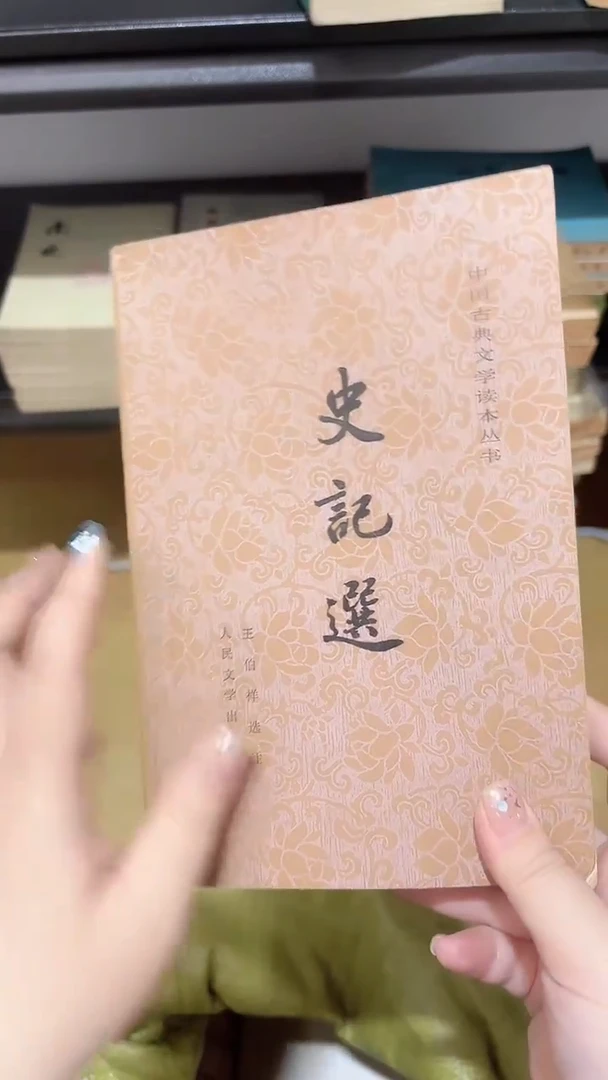 中国古典文学读本丛书
史記選
王伯祥选
人民文学出